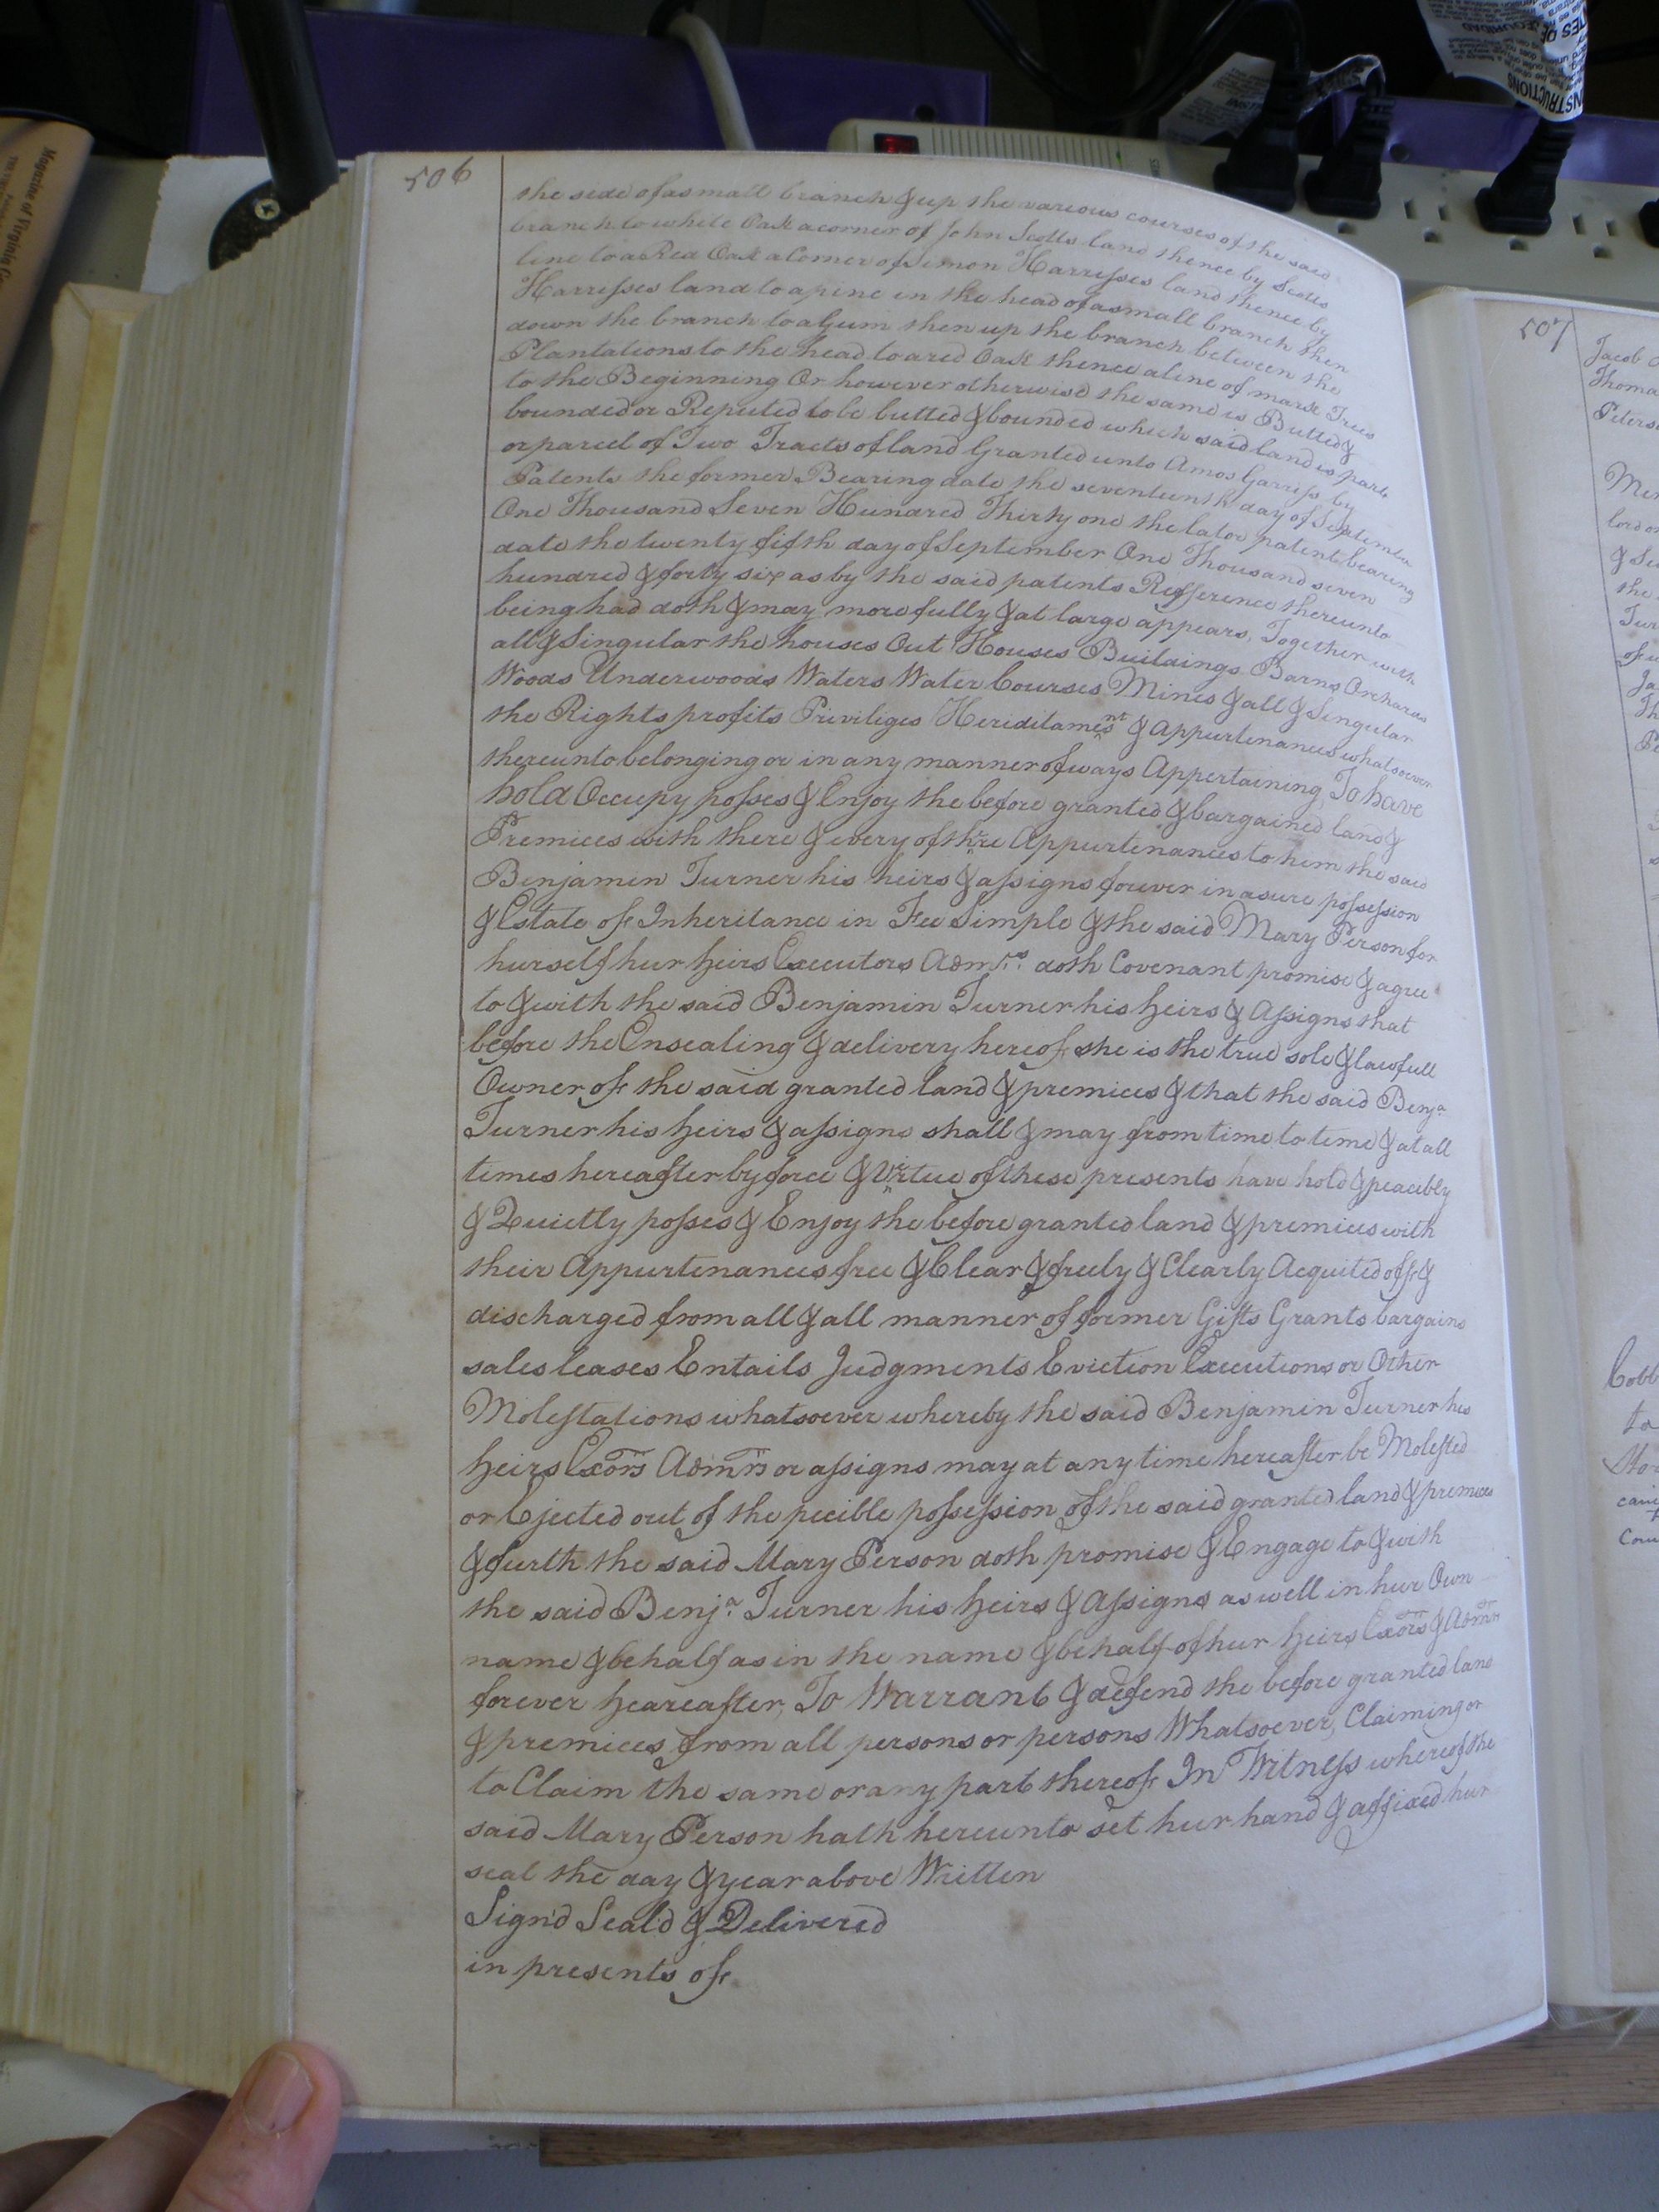 506
the side of a small branch & up the various courses of the said
branch to white Oak a corner of John Scotts land thence by Scotts
line to a Red Oak a Corner of Simon Harrisses land thence by
Harrisses land to a pine in the head of a small branch then
down the branch to a Gum then up the branch between the
Plantations to the head to a red Oak thence a line of markt Trees
to the Beginning Or however otherwise the same is Butted &
bounded or Reputed to be butted & bounded which said land is part
or parcel of Two Tracts of land Granted unto Amos Garriss by
Patents the former Bearing date the seventeenth day of September
One Thousand Seven Hundred Thirty one the lator patent bearing
date the twenty fifth day of September One Thousand seven
hundred & forty six as by the said patents Refference thereunto
being had doth & may more fully & at large appears, Together with
all & Singular the houses Out Houses Buildings Barns Orchards
Woods Underwoods Waters Water Courses Mines & all & Singular
the Rights profits Priviliges Heriditaments & Appurtenances whatsoever
thereunto belonging or in any manner of ways Appertaining To have
hold Occupy posses & Enjoy the before granted & bargained land &
Premices with there & every of there Appurtenances to him the said
Benjamin Turner his heirs & assigns forever in a sure possession
& Estate of Inheritance in Fee Simple & the said Mary Person for
hurself hur heirs Executors Admrs. doth Covenant promise & agree
to & with the said Benjamin Turner his heirs & Assigns that
before the Ensealing & delivery hereof she is the true sole & lawfull
Owner of the said granted land & premices & that the said Benja.
Turner his heirs & assigns shall & may from time to time & at all
times hereafter by force & Virtue of these presents have hold & peacibly
& Quietly posses & Enjoy the before granted land & premices with
their Appurtenances free & Clear & freely & Clearly Acquited off &
discharged from all & all manner of former Gifts Grants bargains
sales leases Entails Judgments Eviction Executions or Other
Molestations whatsoever whereby the said Benjamin Turner his
heirs Exors Admrs or assigns may at any time hereafter be Molested
or Ejected out of the pecible possession of the said granted land & premices
& furth the said Mary Person doth promise & Engage to & with
the said Benja. Turner his heirs & Assigns as well in hur Own
name & behalf as in the name & behalf of hur heirs Exors & Admrs
forever heareafter, To Warrant & defend the before granted land
& premices from all persons or persons Whatsoever, Claiming or
to Claim the same or any part thereof In Witness whereof the
said Mary Person hath hereunto set hur hand & affixed hur
seal the day & year above Written
Sign'd Seal'd & Delivered
in presents of
507
Jacob
Thoma
Peters
the
Tur
Cobb
to
Magazine of Virginia
INSTRUCTIONS